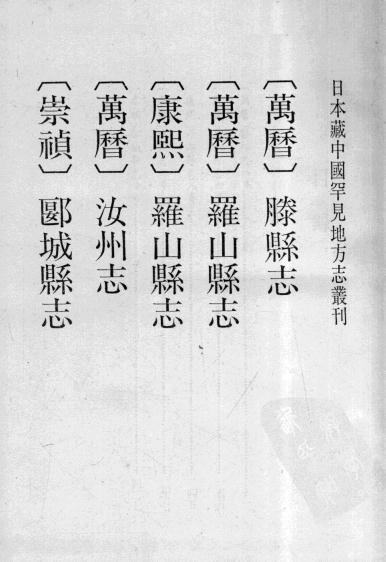 日本藏中國罕見地方志叢刊
〔萬曆〕滕縣志
〔萬曆〕羅山縣志
〔康熙〕羅山縣志
〔萬曆〕汝州志
〔崇禎〕郾城縣志